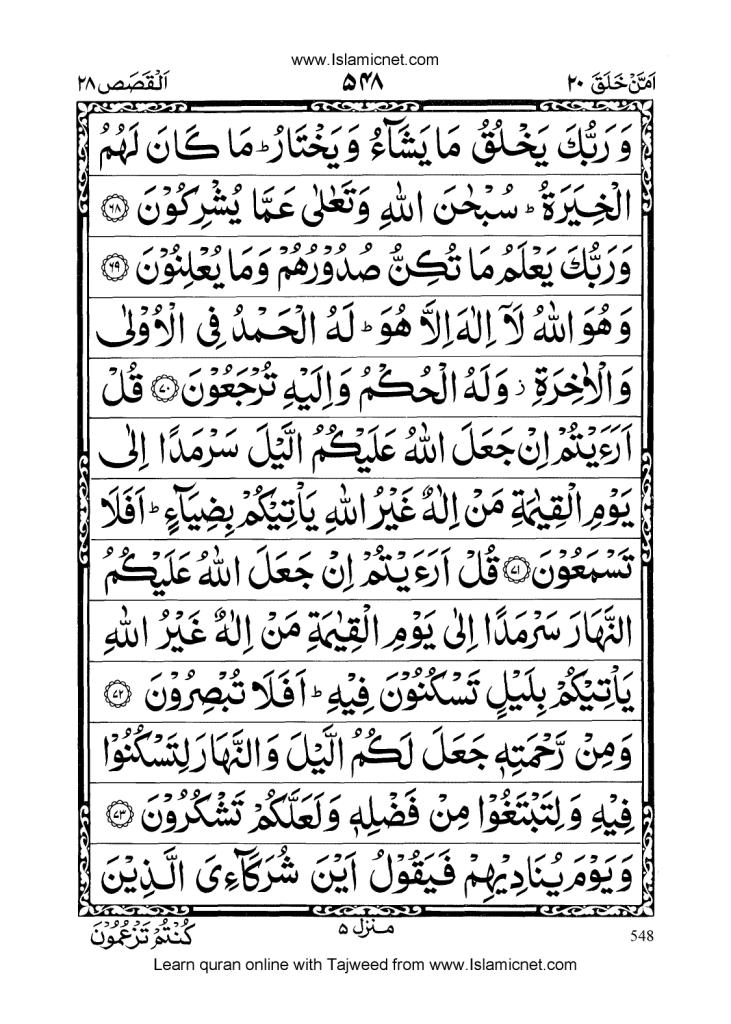 www.Islamicnet.com
اَمَّنْ خَلَقَ ٢٠ ۵۴۸ اَلْقَصَص ٢٨
وَ رَبُّكَ يَخْلُقُ مَا يَشَآءُ وَ يَخْتَارُ ؕ مَا كَانَ لَهُمُ
الْخِيَرَةُ ؕ سُبْحٰنَ اللّٰهِ وَ تَعٰلٰى عَمَّا يُشْرِكُوْنَ ۶۸
وَ رَبُّكَ يَعْلَمُ مَا تُكِنُّ صُدُوْرُهُمْ وَ مَا يُعْلِنُوْنَ ۶۹
وَ هُوَ اللّٰهُ لَآ اِلٰهَ اِلَّا هُوَ ؕ لَهُ الْحَمْدُ فِى الْاُوْلٰى
وَ الْاٰخِرَةِ ز وَ لَهُ الْحُكْمُ وَ اِلَيْهِ تُرْجَعُوْنَ ۷۰ قُلْ
اَرَءَيْتُمْ اِنْ جَعَلَ اللّٰهُ عَلَيْكُمُ الَّيْلَ سَرْمَدًا اِلٰى
يَوْمِ الْقِيٰمَةِ مَنْ اِلٰهٌ غَيْرُ اللّٰهِ يَاْتِيْكُمْ بِضِيَآءٍ ؕ اَفَلَا
تَسْمَعُوْنَ ۷۱ قُلْ اَرَءَيْتُمْ اِنْ جَعَلَ اللّٰهُ عَلَيْكُمُ
النَّهَارَ سَرْمَدًا اِلٰى يَوْمِ الْقِيٰمَةِ مَنْ اِلٰهٌ غَيْرُ اللّٰهِ
يَاْتِيْكُمْ بِلَيْلٍ تَسْكُنُوْنَ فِيْهِ ؕ اَفَلَا تُبْصِرُوْنَ ۷۲
وَ مِنْ رَّحْمَتِهٖ جَعَلَ لَكُمُ الَّيْلَ وَ النَّهَارَ لِتَسْكُنُوْا
فِيْهِ وَ لِتَبْتَغُوْا مِنْ فَضْلِهٖ وَ لَعَلَّكُمْ تَشْكُرُوْنَ ۷۳
وَ يَوْمَ يُنَادِيْهِمْ فَيَقُوْلُ اَيْنَ شُرَكَآءِىَ الَّذِيْنَ
548 منزل ۵ كُنْتُمْ تَزْعُمُوْنَ
Learn quran online with Tajweed from www.Islamicnet.com